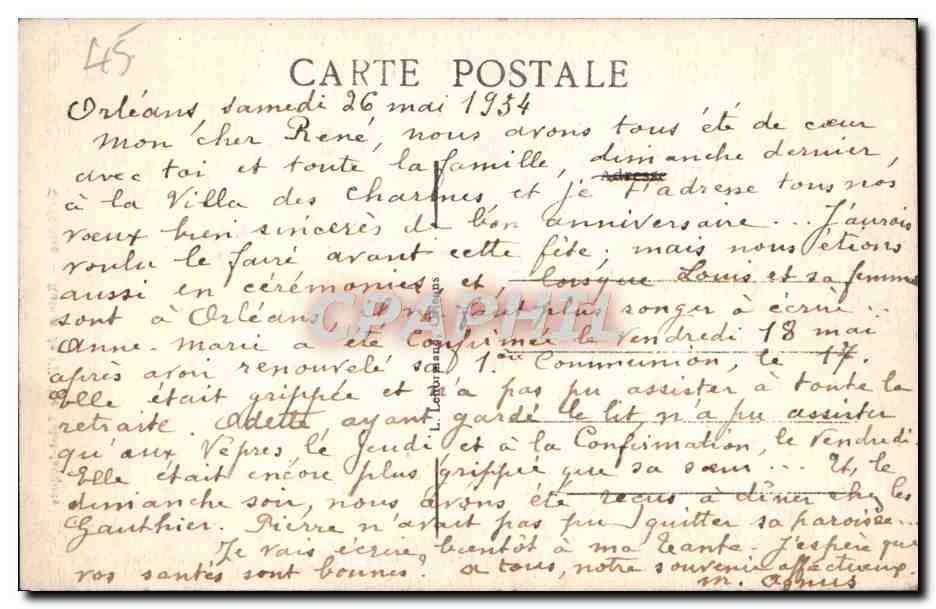 45
CARTE POSTALE
Orléans, samedi 26 mai 1934
Mon cher René, nous avons tous été de cœur
avec toi et toute la famille, dimanche dernier,
Adresse
à la Villa des Charmes, et je t'adresse tous nos
vœux bien sincères de bon anniversaire... J'aurais
voulu le faire avant cette fête; mais nous étions
aussi en cérémonies et, lorsque Louis et sa femme
sont à Orléans, il ne faut plus songer à écrire...
Anne-Marie a été Confirmée le vendredi 18 mai
après avoir renouvelé sa 1ère Communion, le 17.
Elle était grippée et n'a pas pu assister à toute la
retraite. Odette, ayant gardé le lit, n'a pu assister
qu'aux Vêpres, le Jeudi, et à la Confirmation, le Vendredi.
Elle était encore plus grippée que sa sœur... Et, le
dimanche soir, nous avons été reçus à dîner chez les
Gauthier. Pierre n'avait pas pu quitter sa paroisse...
Je vais écrire bientôt à ma tante. J'espère que
vos santés sont bonnes? à tous, notre souvenir affectueux.
M. Agnus
L. Lenormand, Orléans
CPAPHIL